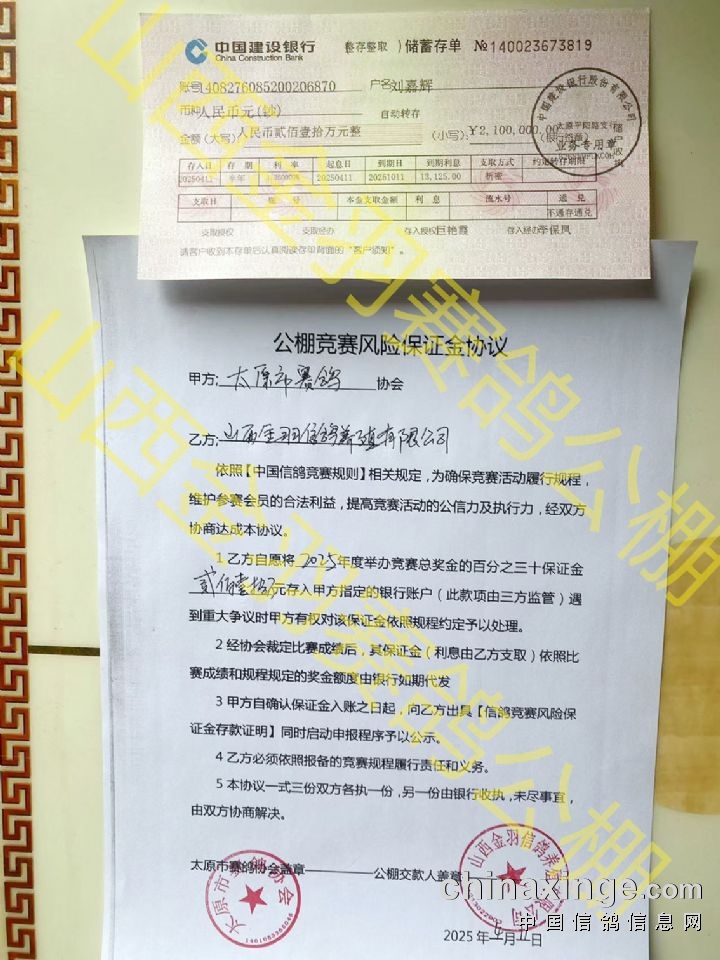 中国建设银行
China Construction Bank
整存整取 ) 储蓄存单 №140023673819
账号 408276085200206870 户名 刘嘉辉
币种 人民币元(钞) 自动转存
金额(大写) 人民币贰佰壹拾万元整 (小写): ¥2,100,000.00
存入日 存期 利率 起息日 到期日 到期利息 支取方式 约定转存期限
20250411 半年 20250411 20251011 13,125.00 凭密
支取日 账号 本金支取金额 利息 流水号 通兑
不通存通兑
支取授权 支取经办 存入授权 巨艳霞 存入经办 李保凤
请客户收到本存单后认真阅读存单背面的“客户须知”。
业务专用章
公棚竞赛风险保证金协议
甲方: 太原市赛鸽 协会
乙方: 山西金羽信鸽养殖有限公司
依照【中国信鸽竞赛规则】相关规定,为确保竞赛活动履行规程,
维护参赛会员的合法利益,提高竞赛活动的公信力及执行力,经双方
协商达成本协议。
1 乙方自愿将 2025 年度举办竞赛总奖金的百分之三十保证金
贰佰壹拾万元存入甲方指定的银行账户(此款项由三方监管)遇
到重大争议时甲方有权对该保证金依照规程约定予以处理。
2 经协会裁定比赛成绩后,其保证金(利息由乙方支取)依照比
赛成绩和规程规定的奖金额度由银行如期代发
3 甲方自确认保证金入账之日起,向乙方出具【信鸽竞赛风险保
证金存款证明】同时启动申报程序予以公示。
4 乙方必须依照报备的竞赛规程履行责任和义务。
5 本协议一式三份双方各执一份,另一份由银行收执,未尽事宜,
由双方协商解决。
太原市赛鸽协会盖章 公棚交款人盖章
太原市赛鸽协会
山西金羽信鸽养殖有限公司
2025 年 4 月 11 日
山西金羽赛鸽公棚
山西金羽赛鸽公棚
chinaxinge.com
中国信鸽信息网